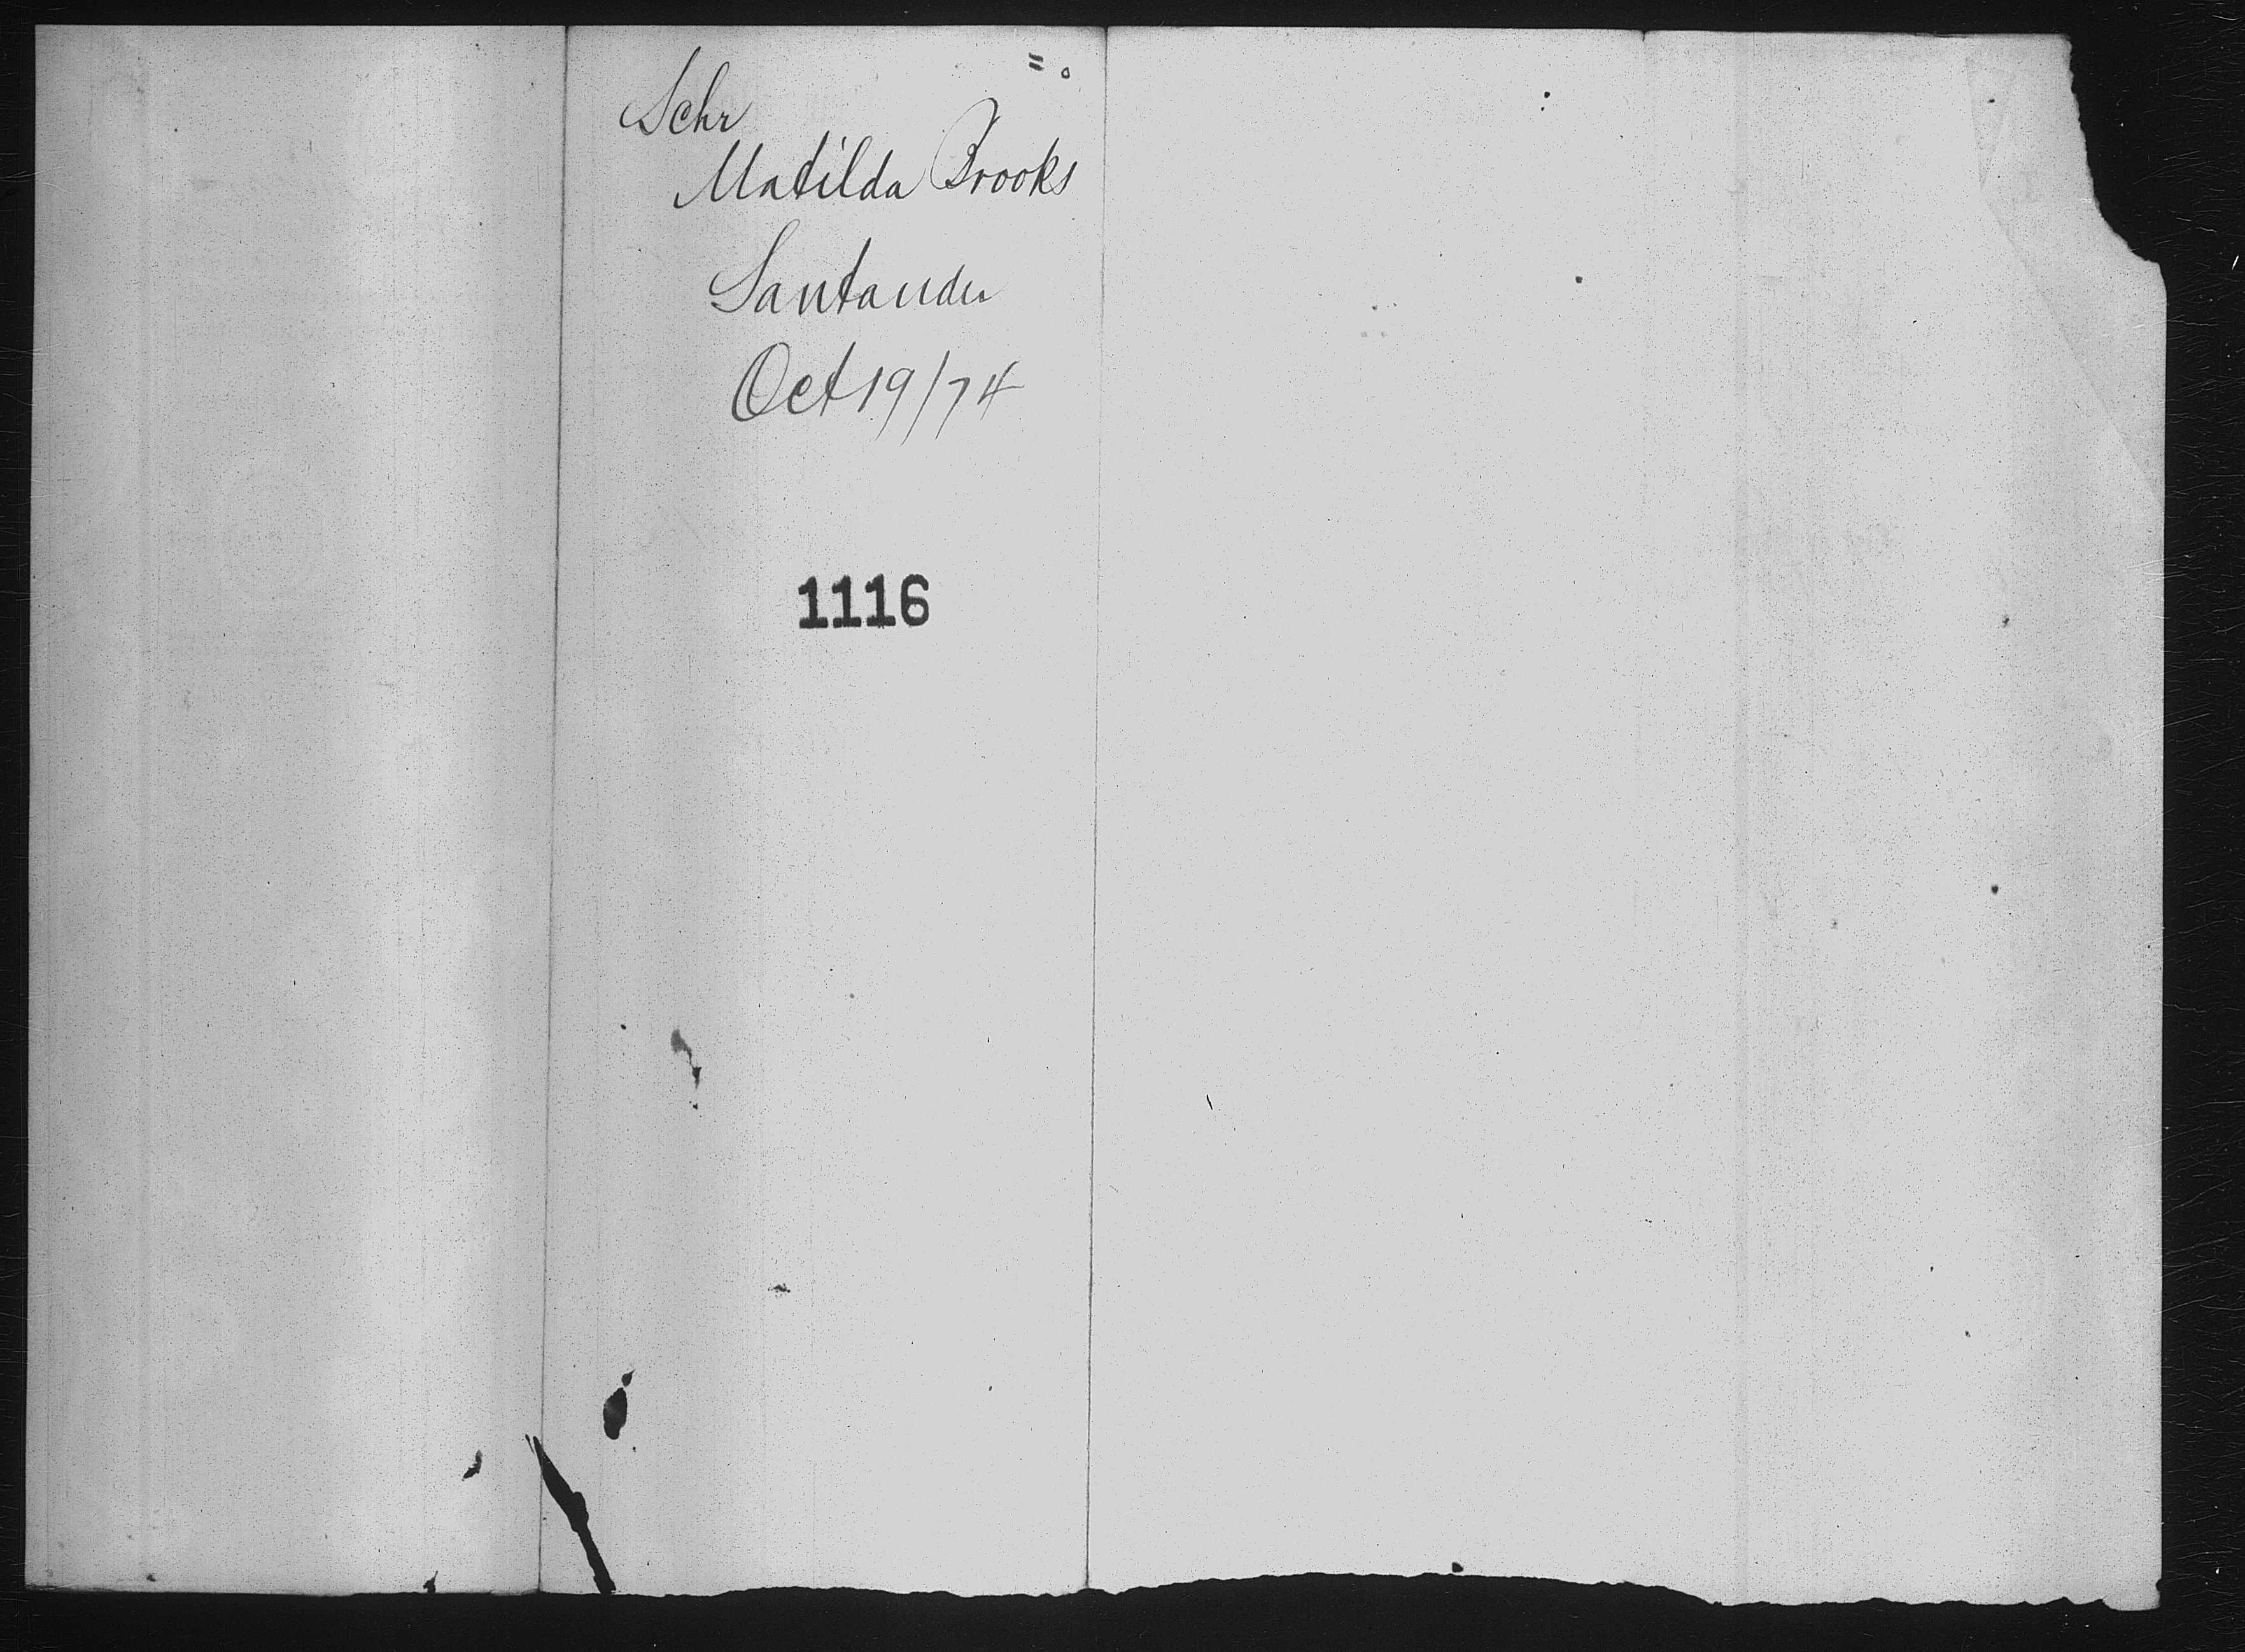 Schr
Matilda Brooks
Santander
Oct 19/74
1116